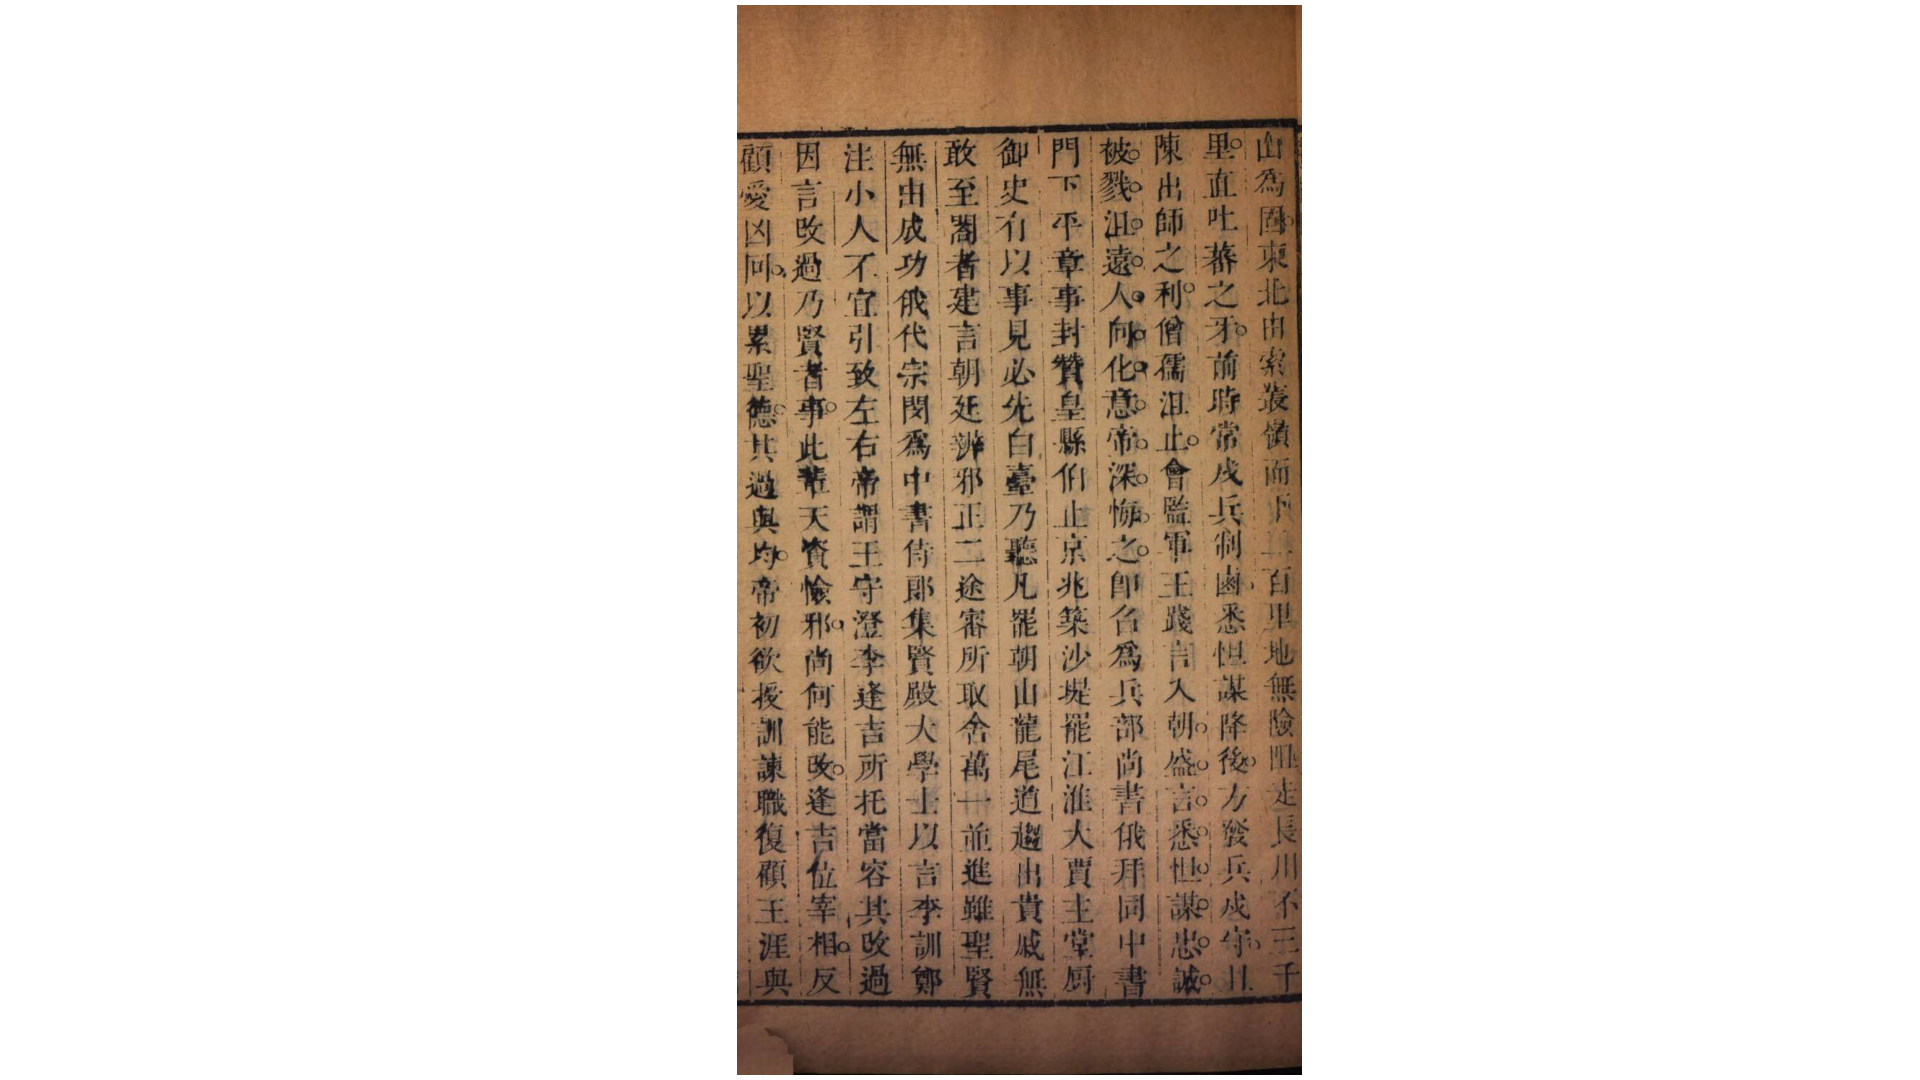 山爲圄東北由索叢嶺而下二百里地無險阻走長川不三千
里直吐蕃之牙前時常戍兵制鹵悉怛謀降後方發兵戍守且
陳出師之利僧孺沮止會監軍王踐言入朝盛言悉怛謀忠誠
被戮沮遠人向化意帝深悔之卽召爲兵部尚書俄拜同中書
門下平章事封贊皇縣伯止京兆築沙堤罷江淮大賈主堂厨
御史有以事見必先白臺乃聽凡罷朝山龍尾道趨出貴戚無
敢至閣者建言朝廷辨邪正二途審所取舍萬一並進雖聖賢
無由成功俄代宗閔爲中書侍郎集賢殿大學士以言李訓鄭
注小人不宜引致左右帝謂王守澄李逢吉所托當容其改過
因言改過乃賢者事此輩天資憸邪尚何能改逢吉位宰相反
顧愛凶回以累聖德其過與均帝初欲授訓諫職復顧王涯與